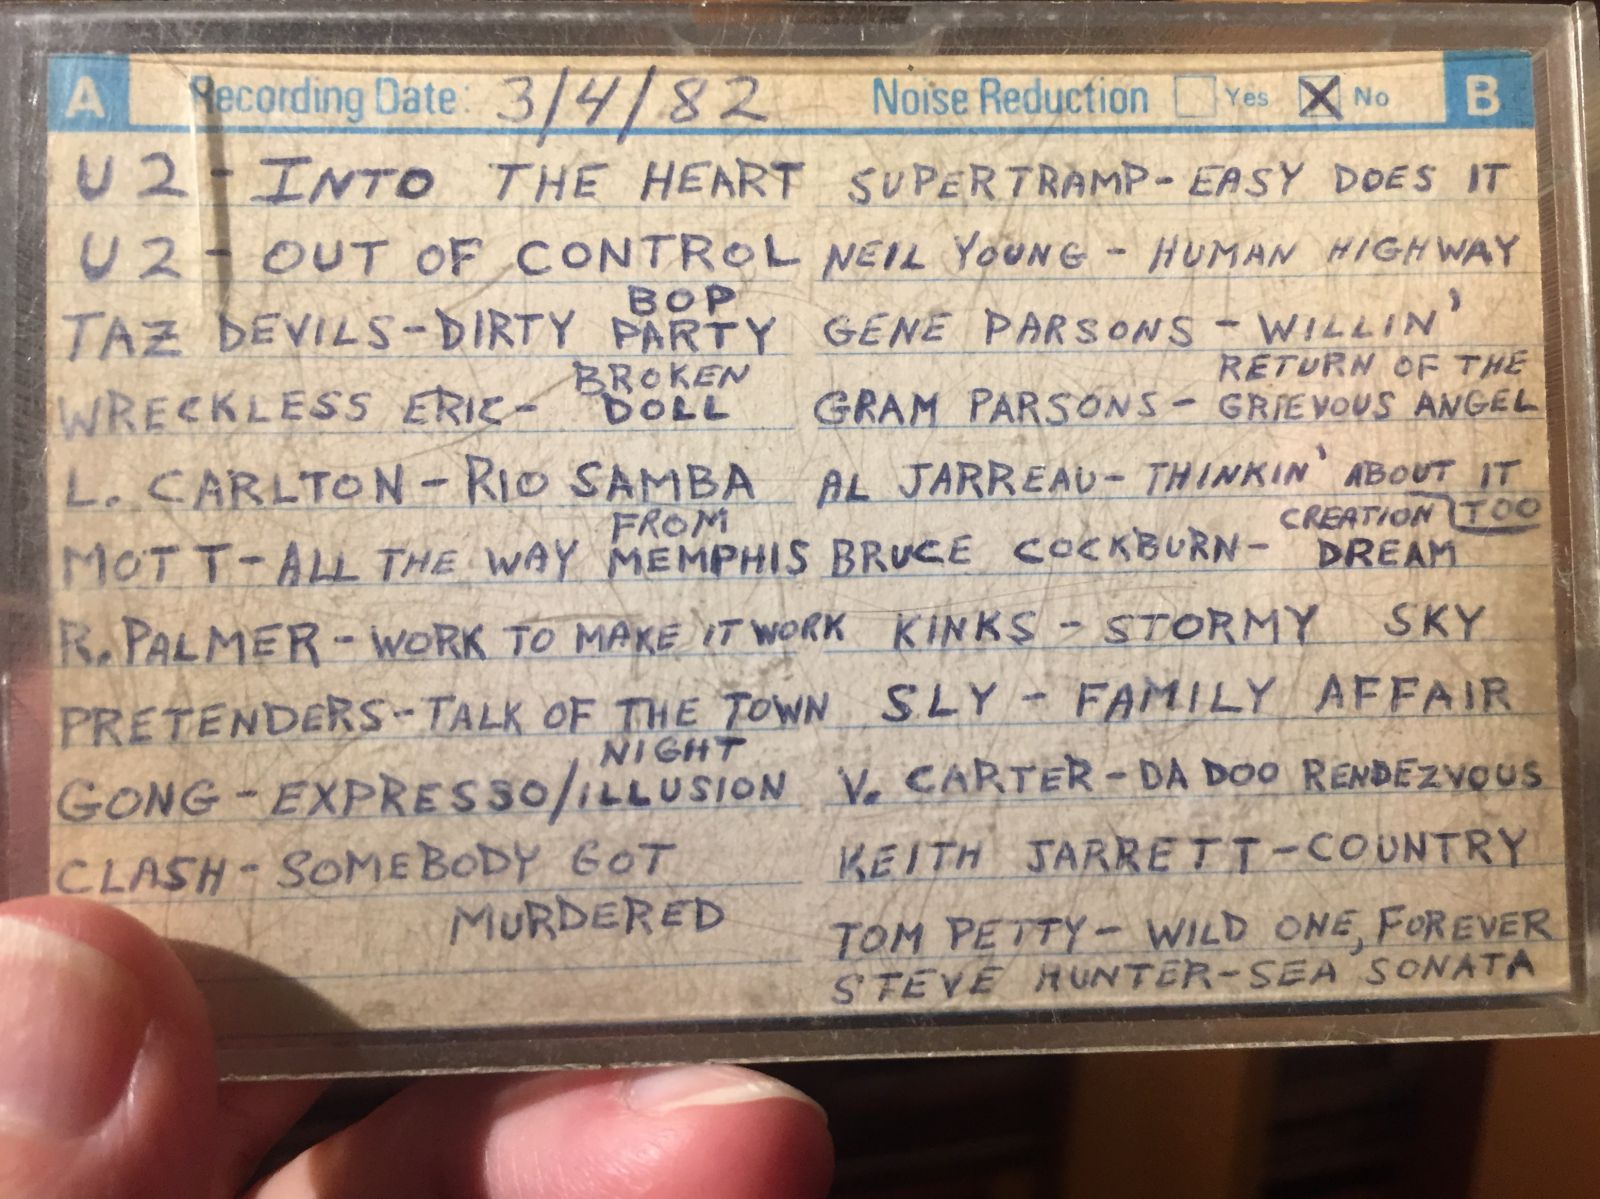 A Recording Date: 3/4/82 Noise Reduction Yes No B
U2 - INTO THE HEART
U2 - OUT OF CONTROL
TAZ DEVILS - DIRTY BOP PARTY
WRECKLESS ERIC - BROKEN DOLL
L. CARLTON - RIO SAMBA
MOTT - ALL THE WAY FROM MEMPHIS
R. PALMER - WORK TO MAKE IT WORK
PRETENDERS - TALK OF THE TOWN
GONG - EXPRESSO/NIGHT ILLUSION
CLASH - SOMEBODY GOT
MURDERED
SUPERTRAMP - EASY DOES IT
NEIL YOUNG - HUMAN HIGHWAY
GENE PARSONS - WILLIN'
GRAM PARSONS - RETURN OF THE GRIEVOUS ANGEL
AL JARREAU - THINKIN' ABOUT IT TOO
BRUCE COCKBURN - CREATION DREAM
KINKS - STORMY SKY
SLY - FAMILY AFFAIR
V. CARTER - DA DOO RENDEZVOUS
KEITH JARRETT - COUNTRY
TOM PETTY - WILD ONE, FOREVER
STEVE HUNTER - SEA SONATA